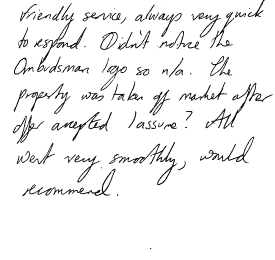 Friendly service, always very quick
to respond. Didn't notice the
Ombudsman logo so n/a. The
property was taken off market after
offer accepted I assume? All
went very smoothly, would
recommend.